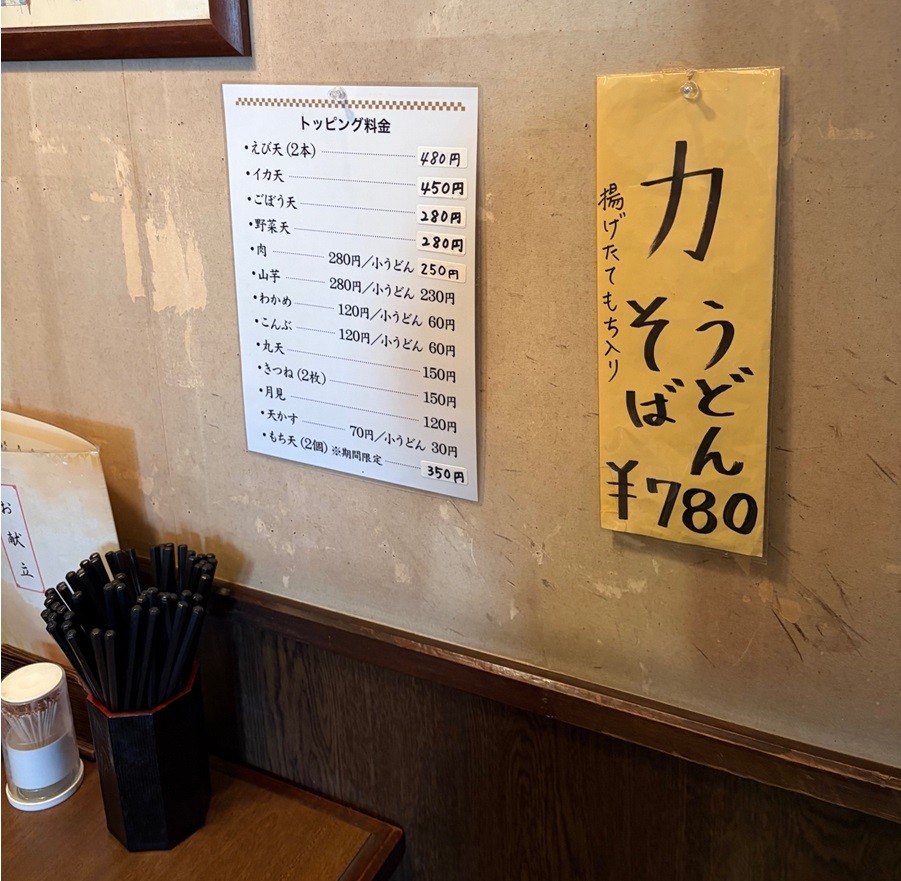 トッピング料金
・えび天(2本) 480円
・イカ天 450円
・ごぼう天 280円
・野菜天 280円
・肉 280円/小うどん 250円
・山芋 280円/小うどん 230円
・わかめ 120円/小うどん 60円
・こんぶ 120円/小うどん 60円
・丸天 150円
・きつね(2枚) 150円
・月見 120円
・天かす 70円/小うどん 30円
・もち天(2個)※期間限定 350円
力
うどん
そば
揚げたてもち入り
¥780
お献立